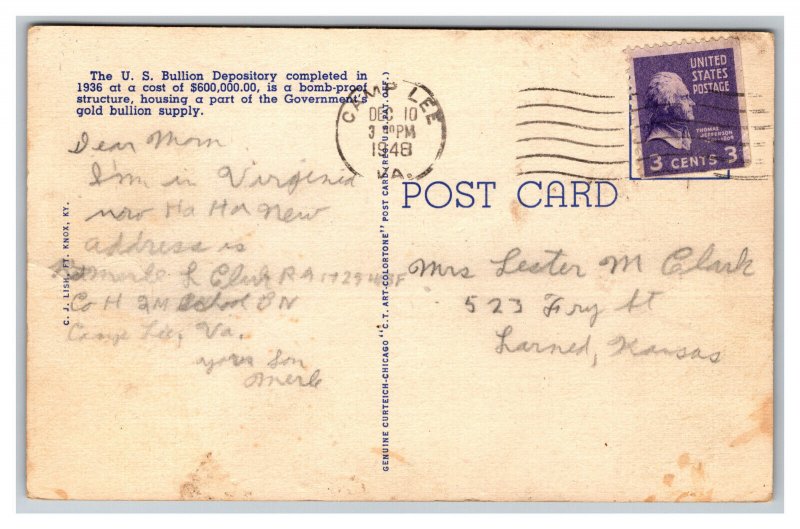 The U. S. Bullion Depository completed in
1936 at a cost of $600,000.00, is a bomb-proof
structure, housing a part of the Government's
gold bullion supply.
Dear Mom
I'm in Virginia
now Ha Ha New
address is
Merle L Clark RA
Co H QM School BN
Camp Lee, Va.
yours Son
Merle
C. J. LISH, FT. KNOX, KY.
GENUINE CURTEICH-CHICAGO "C.T. ART-COLORTONE" POST CARD (REG. U.S. PAT. OFF.)
CAMP LEE
DEC 10
3 PM
1948
VA.
UNITED
STATES
POSTAGE
THOMAS
JEFFERSON
3 CENTS 3
POST CARD
Mrs Lester M Clark
523 Fry St
Larned, Kansas